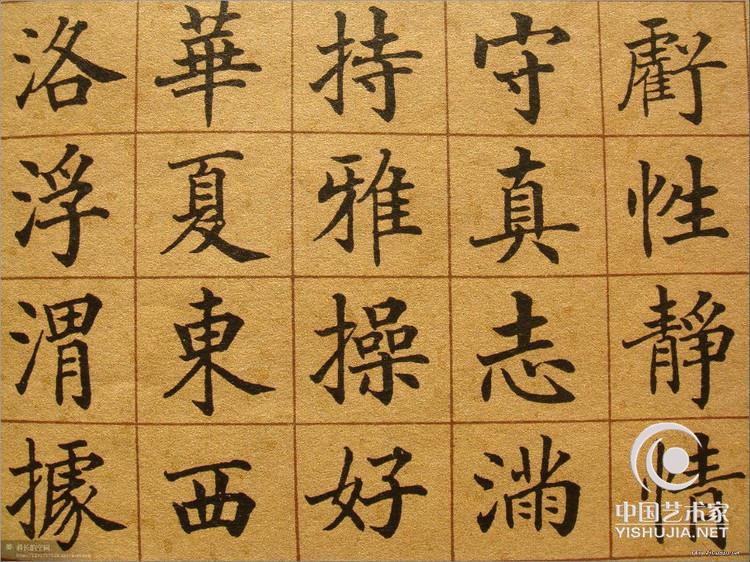 虧性靜情
守真志滿
持雅操好
華夏東西
洛浮渭據
中国艺术家
YISHUJIA.NET